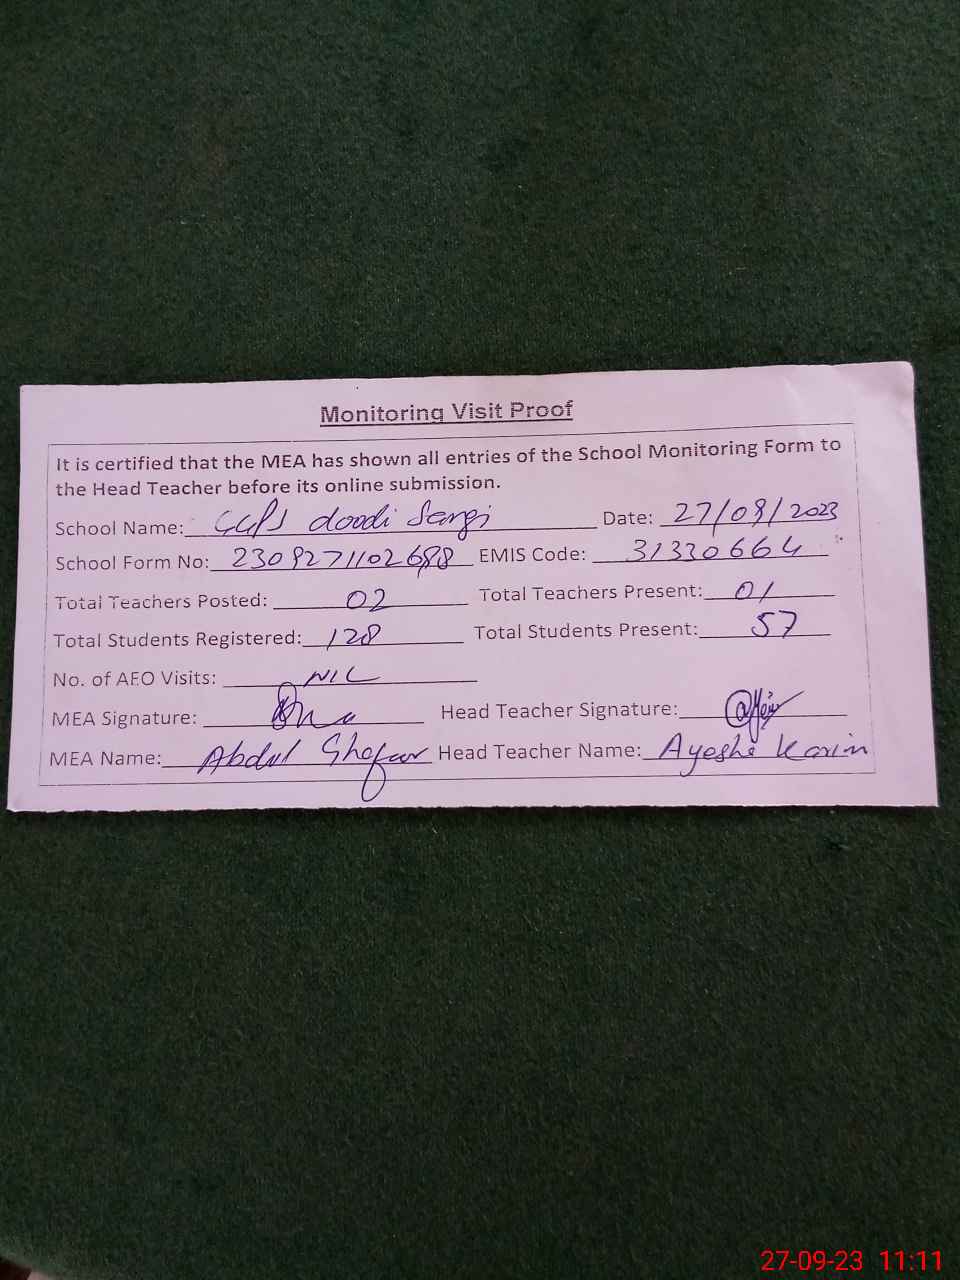 Monitoring Visit Proof
It is certified that the MEA has shown all entries of the School Monitoring Form to
the Head Teacher before its online submission.
School Name: GGPS doodi Sangi Date: 27/09/2023
School Form No: 2309271102688 EMIS Code: 31330664
Total Teachers Posted: 02 Total Teachers Present: 01
Total Students Registered: 128 Total Students Present: 57
No. of AEO Visits: NIL
MEA Signature: Head Teacher Signature:
MEA Name: Abdul Ghafar Head Teacher Name: Ayesha Karim
27-09-23 11:11